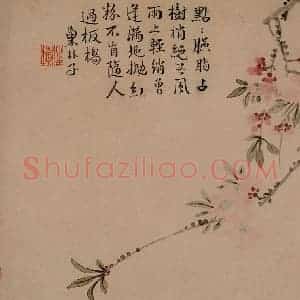 點〻臙脂占
樹梢絕無風
雨上輕綃曾
逢滿地拋紅
粉不肯隨人
過板橋
Shufaziliao.com